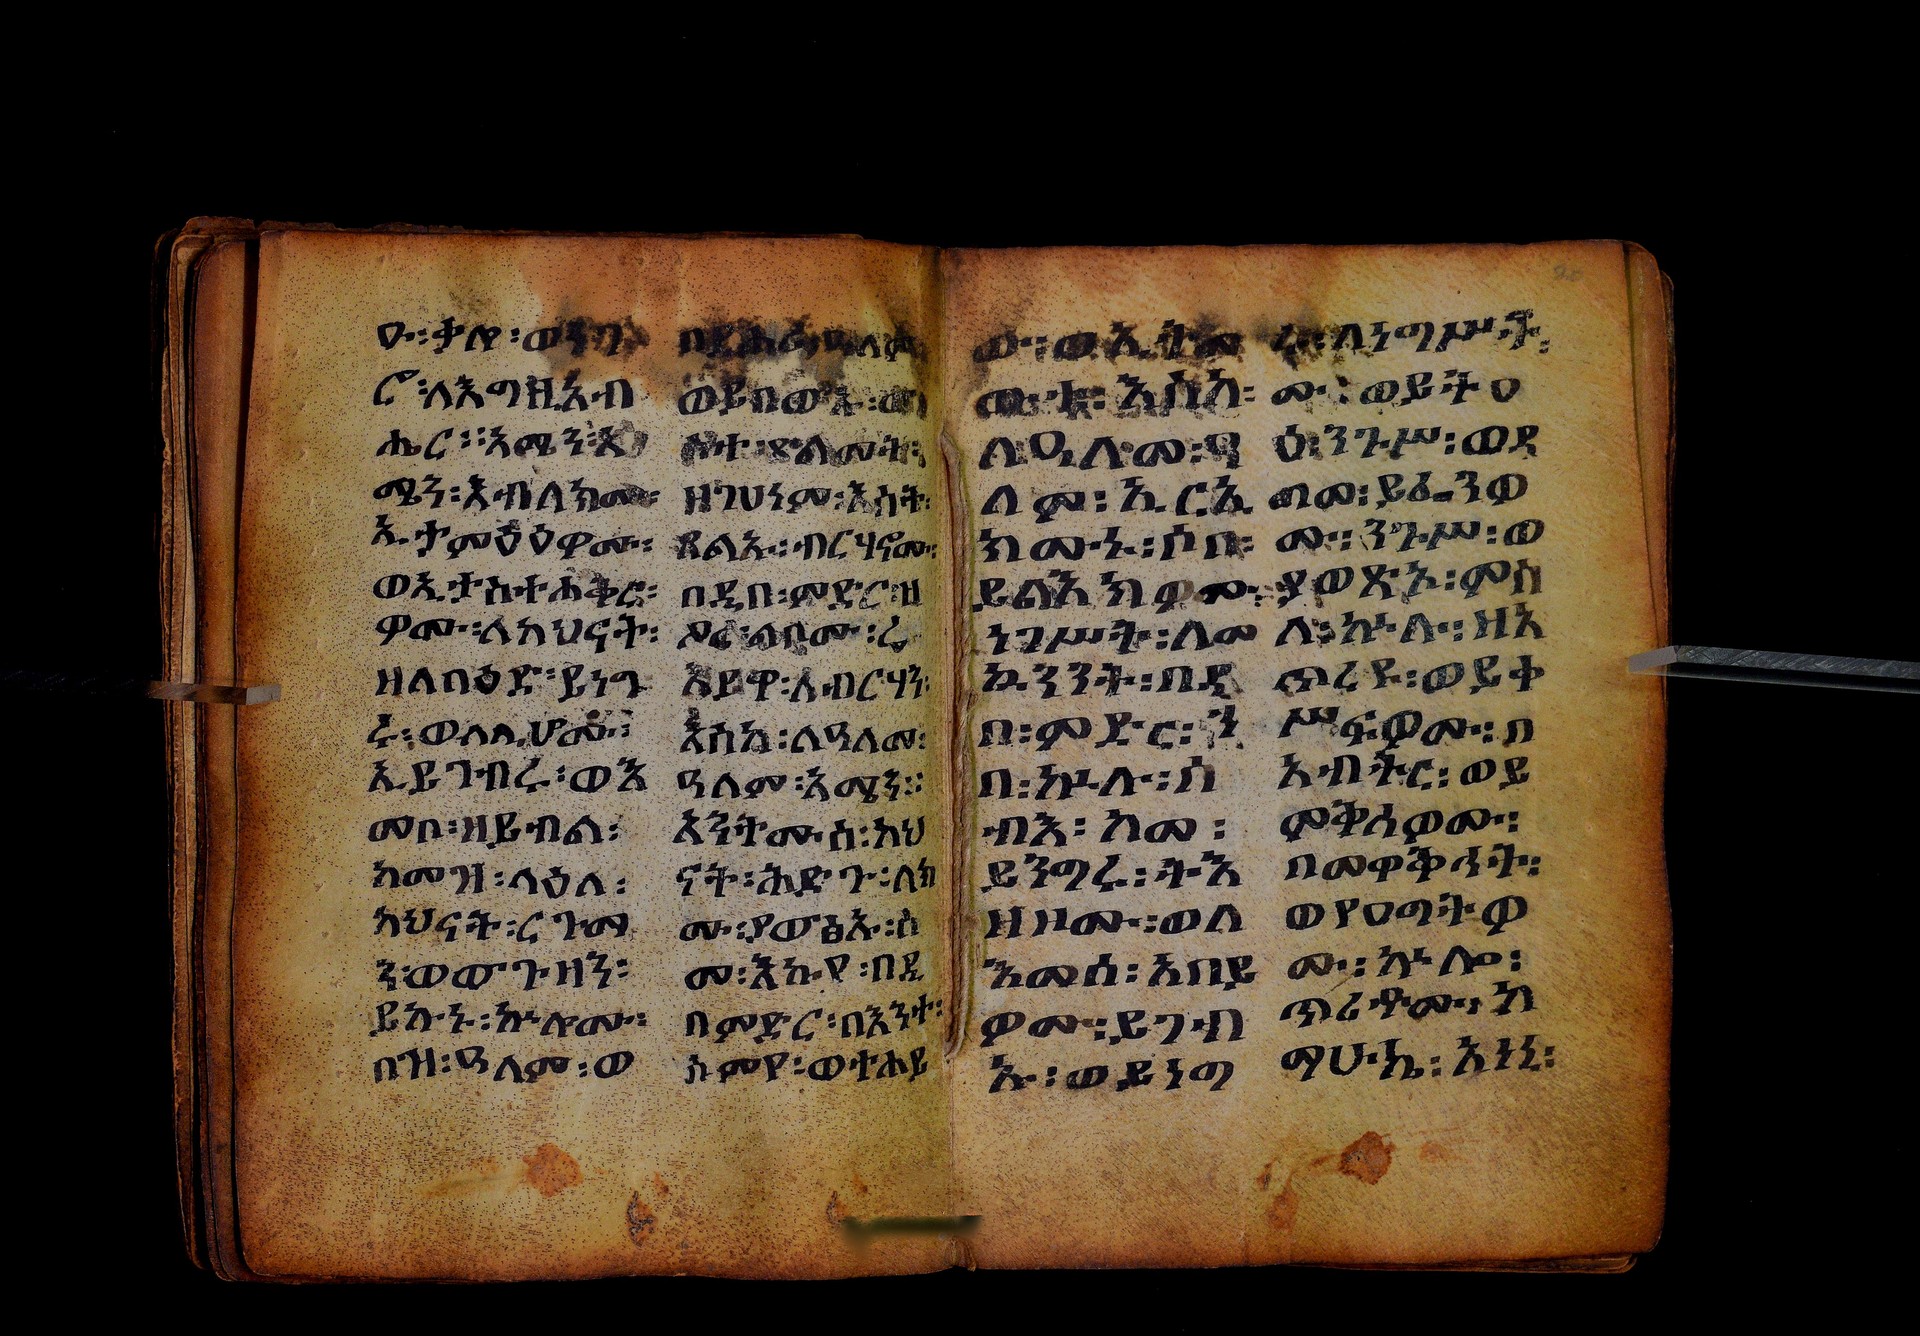 ዑ፡ ቃሉ፡ ወነግ
ሮ፡ ለእግዚአብ
ሔር፡ አሜን፡ አ
ሜን፡ እብለክሙ፡
ኢታምዕዕዎሙ፡
ወኢታስተሐቅር፡
ዎሙ፡ ለካህናት፡
ዘለበዕድ፡ ይነግ
ሩ፡ ወለሊሆሙ፡
ኢይገብሩ፡ ወእ
መቦ፡ ዘይብል፡
ከመዝ፡ ላዕለ፡
ካህናት፡ ርጉመ
ን፡ ወውጉዘን፡
ይኩኑ፡ ኵሎሙ፡
በዝ፡ ዓለም፡ ወ
ወይበውኡ፡
ውስተ፡ ጽልመት፡
ዘገሀነም፡ እስት፡
ብርሃኖሙ፡
በዲበ፡ ምድር፡ ዘ
ልቦሙ፡ ረ
እይዋ፡ ለብርሃን፡
እስከ፡ ለዓለመ፡
ዓለም፡ አሜን።
አንትሙሰ፡ ካህ
ናት፡ ሕድጉ፡ ለክ
ሙ፡ ያውፅኡ፡ ስ
መ፡ እኩየ፡ በዲ
በምድር፡ በእንተ፡
ስምየ፡ ወተሐይ
ው፡ ወኢትመ
ውቱ፡ እስከ፡
ለዓለመ፡ ዓ
ለም፡ ኢርኢ
ክሙኑ፡ ሶበ፡
ይልእክዎሙ፡
ነገሥት፡ ለመ
ኳንንት፡ በዲ
በ፡ ምድር፡ ን
በ፡ ኵሉ፡ ሰ
ብእ፡ ከመ፡
ይንግሩ፡ ትእ
ዘዞሙ፡ ወለ
እመሰ፡ አበይ
ዎሙ፡ ይገብ
ኡ፡ ወይነግ
ሩ፡ ለነግሥት፡
ሙ፡ ወይትዐ
ዕ፡ ንጉሥ፡ ወደ
ግመ፡ ይፌንዎ
ሙ፡ ንጉሥ፡ ወ
ያወጽኦ፡ ምስ
ለ፡ ኵሉ፡ ዘአ
ጥረየ፡ ወይቀ
ሥፍዎሙ፡ በ
አብትር፡ ወይ
ምቅሕዎሙ፡
በመዋቅሕት፡
ወየዐግትዎ
ሙ፡ ኵሎ፡
ጥሪቶሙ፡ ከ
ማሁኬ፡ አነኒ፡